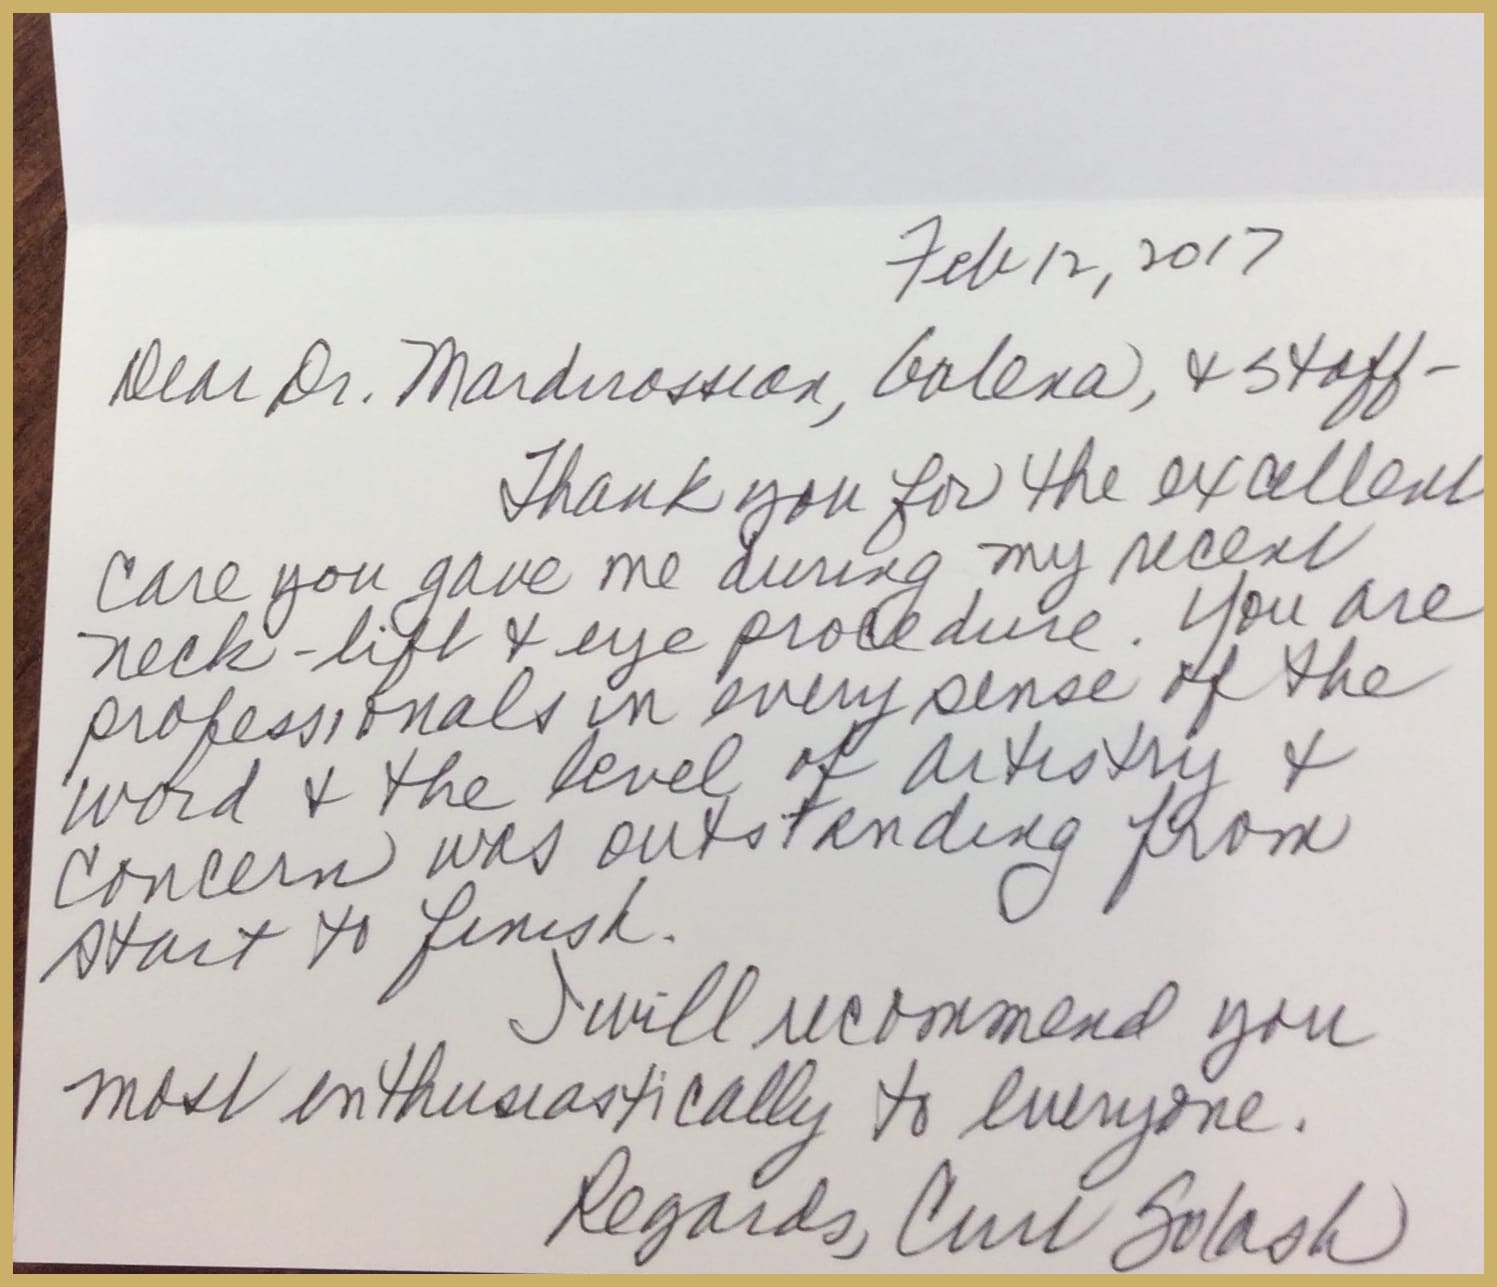 Feb 12, 2017
Dear Dr. Mardirossian, Galena, & Staff-
Thank you for the excellent
care you gave me during my recent
neck-lift & eye procedure. You are
professionals in every sense of the
word & the level of artistry &
concern was outstanding from
start to finish.
I will recommend you
most enthusiastically to everyone.
Regards, Curt Solash